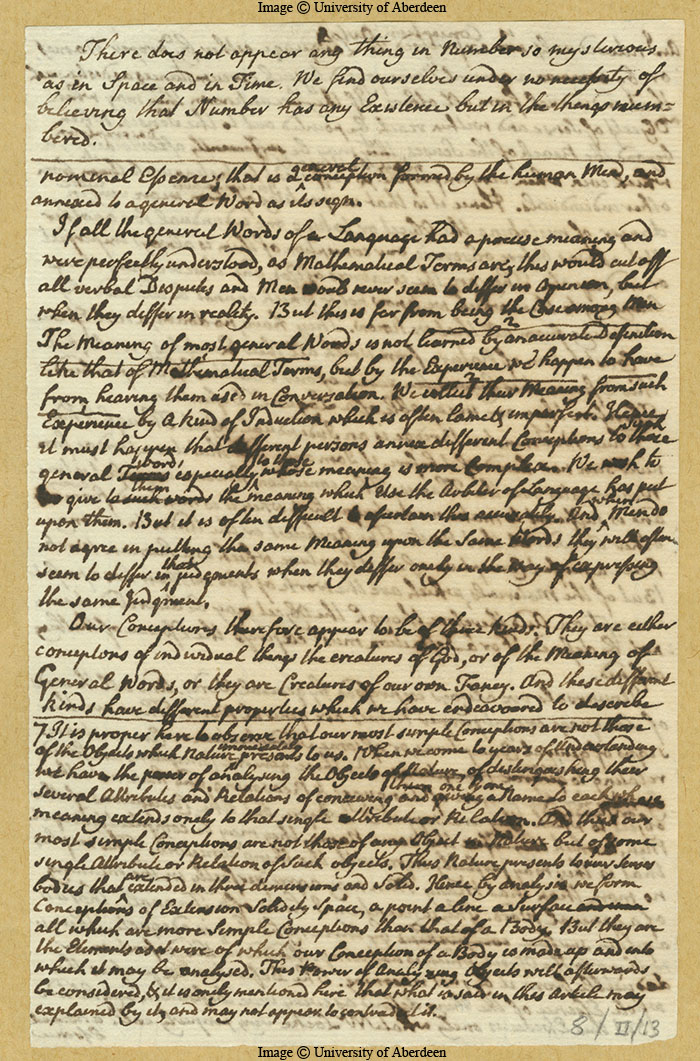 Image © University of Aberdeen
There does not appear any thing in Number so mysterious
as in Space and in Time. We find ourselves under no necessity of
believing that Number has any Existence but in the things num=
bered.
nominal Essence; that is a general conception formed by the human Mind, and
annexed to a general Word as its sign.
If all the general Words of a Language had a precise meaning and
were perfectly understood, as Mathematical Terms are, this would cut off
all verbal Disputes and Men would never seem to differ in Opinion, but
when they differ in reality. But this is far from being the Case among Men
The Meaning of most general Words is not learned by an accurate Definition
like that of Mathematical Terms, but by the Experience we happen to have
from hearing them used in Conversation. We collect their Meaning from such
Experience by a kind of Induction which is often lame & imperfect. Hence
it must happen that different persons annex different Conceptions to those
general words especially to those whose meaning is more Complex. We wish to
give to them the meaning which Use the Arbiter of Language has put
upon them. But it is often difficult to ascertain this accurately. And when Men do
not agree in putting the same Meaning upon the Same Words they will often
seem to differ in their judgments when they differ onely in the way of expressing
the same Judgment.
Our Conceptions therefore appear to be of three kinds. They are either
conceptions of individual things the creatures of God, or of the Meaning of
General Words, or they are Creatures of our own Fancy. And these different
kinds have different properties which we have endeavoured to describe
7 It is proper here to observe that our most simple Conceptions are not those
of the Objects which Nature immediately presents to us. When we come to years of Understanding
we have the power of analysing the Objects of Nature, of distinguishing their
several Attributes and Relations of conceiving them one by one and giving a Name to each whose
meaning extends onely to that single attribute or Relation. And thus our
most simple Conceptions are not those of any Object in Nature but of some
single Attribute or Relation of such objects. Thus Nature presents to our Senses
bodies that are extended in three dimensions and Solid. Hence by analysis we form
Conceptions of Extension Solidity Space, a point a line a Surface
all which are more Simple Conceptions than that of a Body. But they are
the Elements as it were of which our Conception of a Body is made up and into
which it may be analysed. This Power of Analyzing Objects will afterwards
be considered, & it is onely mentioned here that what is said in this Article may
explained by it, and may not appear to contradict it.
8/II/13
Image © University of Aberdeen